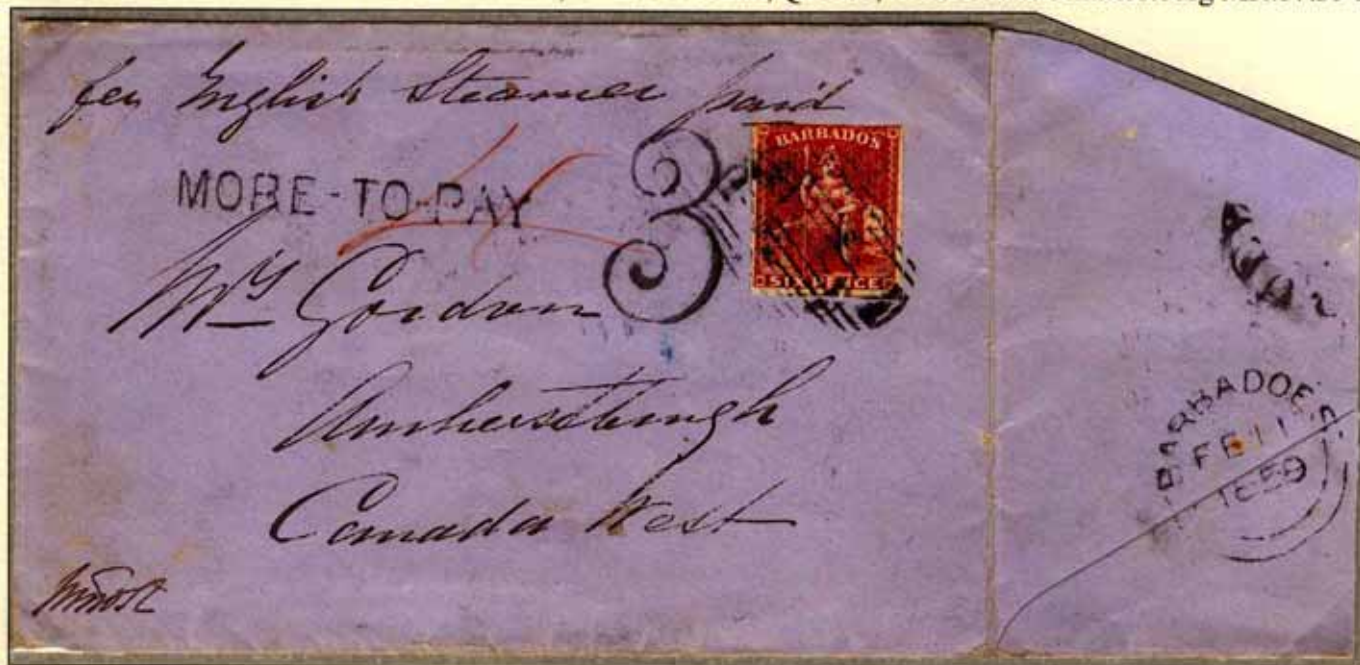 per English Steamer paid
BARBADOS
MORE-TO-PAY
4
3
SIX PENCE
Mrs Gordon
Amherstburgh
Canada West
BARBADOES
FE 11
1859